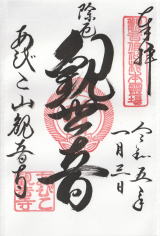 奉拝
令和五年
一月三日
除厄
観世音
あびこ山観音寺